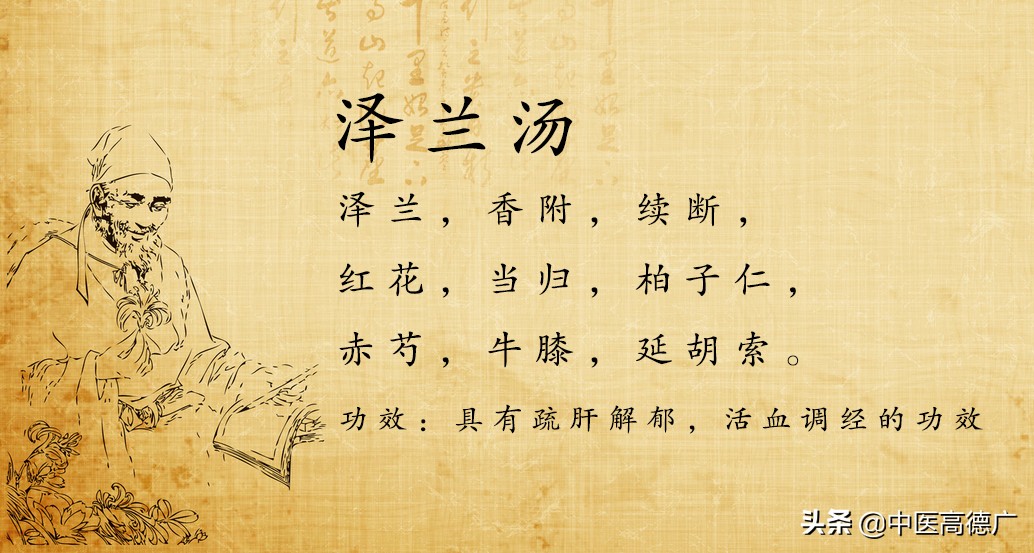 泽兰汤
泽兰，香附，续断，
红花，当归，柏子仁，
赤芍，牛膝，延胡索。
功效：具有疏肝解郁，活血调经的功效
头条 @中医高德广